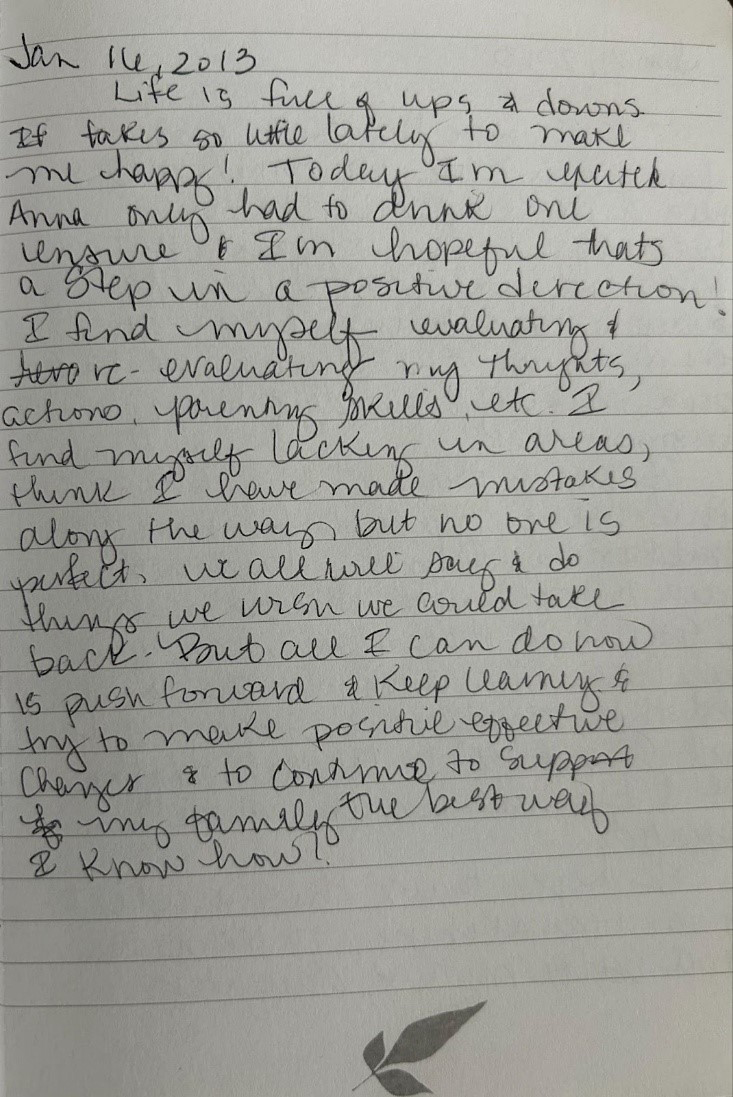 Jan 16, 2013
Life is full of ups & downs.
It takes so little lately to make
me happy! Today I'm excited
Anna only had to drink one
ensure & I'm hopeful thats
a step in a positive direction!
I find myself evaluating &
re-evaluating my thoughts,
actions, parenting skills, etc. I
find myself lacking in areas,
think I have made mistakes
along the way, but no one is
perfect, we all will say & do
things we wish we could take
back. But all I can do now
is push forward & keep learning &
try to make positive effective
changes & to continue to support
my family the best way
I know how!